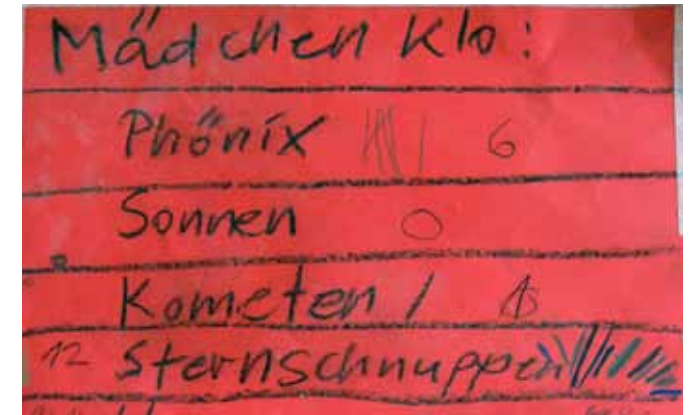 Mädchen Klo:
Phönix 6
Sonnen 0
Kometen
12 Sternschnuppen